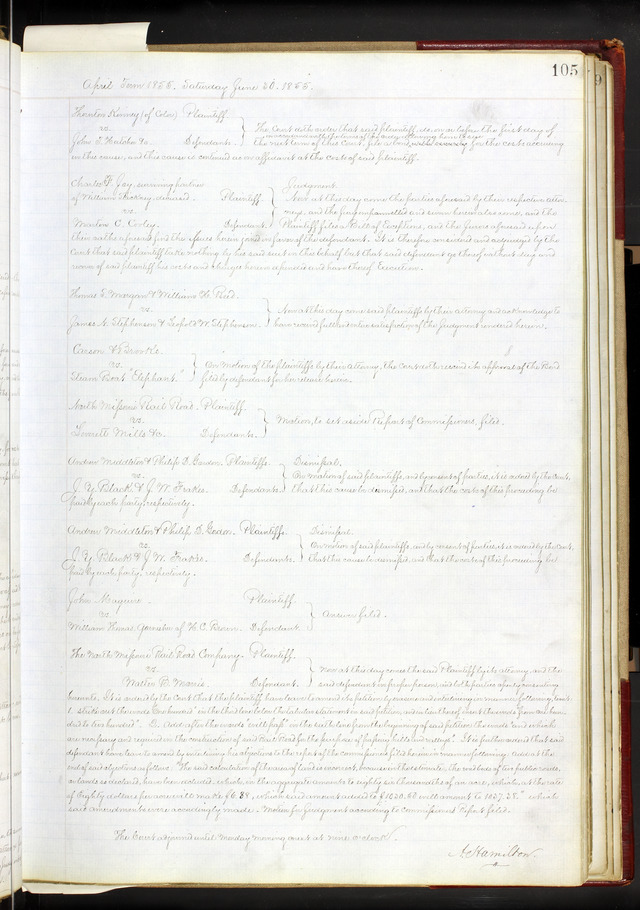 105
April Term 1855. Saturday June 30. 1855.
Thornton Kinney (of Color) Plaintiff
vs.
John F. Hatcher &c. Defendants.
The Court orders that said plaintiff, do on or before the first day of
the next term of this Court, file a bond, with security for the costs accruing
in this cause, and this cause is continued on an affidavit at the costs of said plaintiff.
Charles P. Gay, surviving partner
of William Hickney, deceased. Plaintiff
vs.
Warton C. Corley. Defendant.
Judgment.
Now at this day come the parties aforesaid by their respective attor-
neys, and the jury empannelled and sworn herein also come, and the
Plaintiff files a Bill of Exceptions, and the jurors aforesaid upon
their oaths aforesaid find the issues herein joined in favor of the defendant. It is therefore considered and adjudged by the
Court that said plaintiff take nothing by his said suit in this behalf but that said defendant go thereof without day and
recover of said plaintiff his costs and charges herein expended and have thereof Execution.
Thomas S. Morgan & William H. Reed.
vs.
James N. Stephenson & Leopold W. Stephenson.
Now at this day come said plaintiffs by their attorney and acknowledge to
have received full and entire satisfaction of the Judgment rendered herein.
Carson & Brooks.
vs.
Steam Boat "Elephant."
On motion of the plaintiffs by their Attorney, the Court doth rescind its approval of the Bond
filed by defendant for her release herein.
North Missouri Rail Road. Plaintiff.
vs.
Lovett Mills &c. Defendants.
Motion, to set aside Report of Commissioners, filed.
Andrew Middleton & Philip D. Gordon. Plaintiffs.
vs.
J. Y. Black & J. W. Frakes. Defendants.
Dismissal.
On motion of said plaintiffs, and by consent of parties, it is ordered by the Court,
that this cause be dismissed, and that the costs of this proceeding be
paid by each party, respectively.
Andrew Middleton & Philip D. Gordon. Plaintiffs
vs.
J. Y. Black & J. W. Frakes. Defendants.
Dismissal.
On motion of said plaintiffs, and by consent of parties, it is ordered by the Court,
that this cause be dismissed, and that the costs of this proceeding be
paid by each party, respectively.
John Maguire. Plaintiff.
vs.
William Thomas, Garnishee of H. C. Brown. Defendant.
Answer filed.
The North Missouri Rail Road Company. Plaintiff.
vs.
Walter B. Morris Defendant.
Now at this day comes the said Plaintiff by its Attorney, and the
said defendant in proper person, and both parties again consenting
hereunto, it is ordered by the Court that the plaintiff have leave to amend the petition
strike out the words "One hundred" in the third line below the tabular statement in said petition, and in lieu thereof insert the words "four one hun-
dred to two hundred". 2. Add after the words "with path" in the sixth line from the beginning of said petition the words "and which
are necessary and required in the construction of said Rail Road for the purpose of
defendant have leave to amend by interlining his objections to the report of the commissioners filed herein in manner following. Add at the
end of said objections as follows. "The said calculation of the area of land is incorrect, because in the estimate, the road beds of two public roads,
on lands so declared, have been included, which, in the aggregate amounts to eighty six thousandths of an acre, which, at the rate
of Eighty dollars per acre, will make $6.88, which said amount added to $1020.50 will amount to 1027.38." which
said amendments were accordingly made. Motion for Judgment according to Commissioners' Report filed.
The Court adjourned until Monday morning next at nine o'clock.
A. Hamilton.